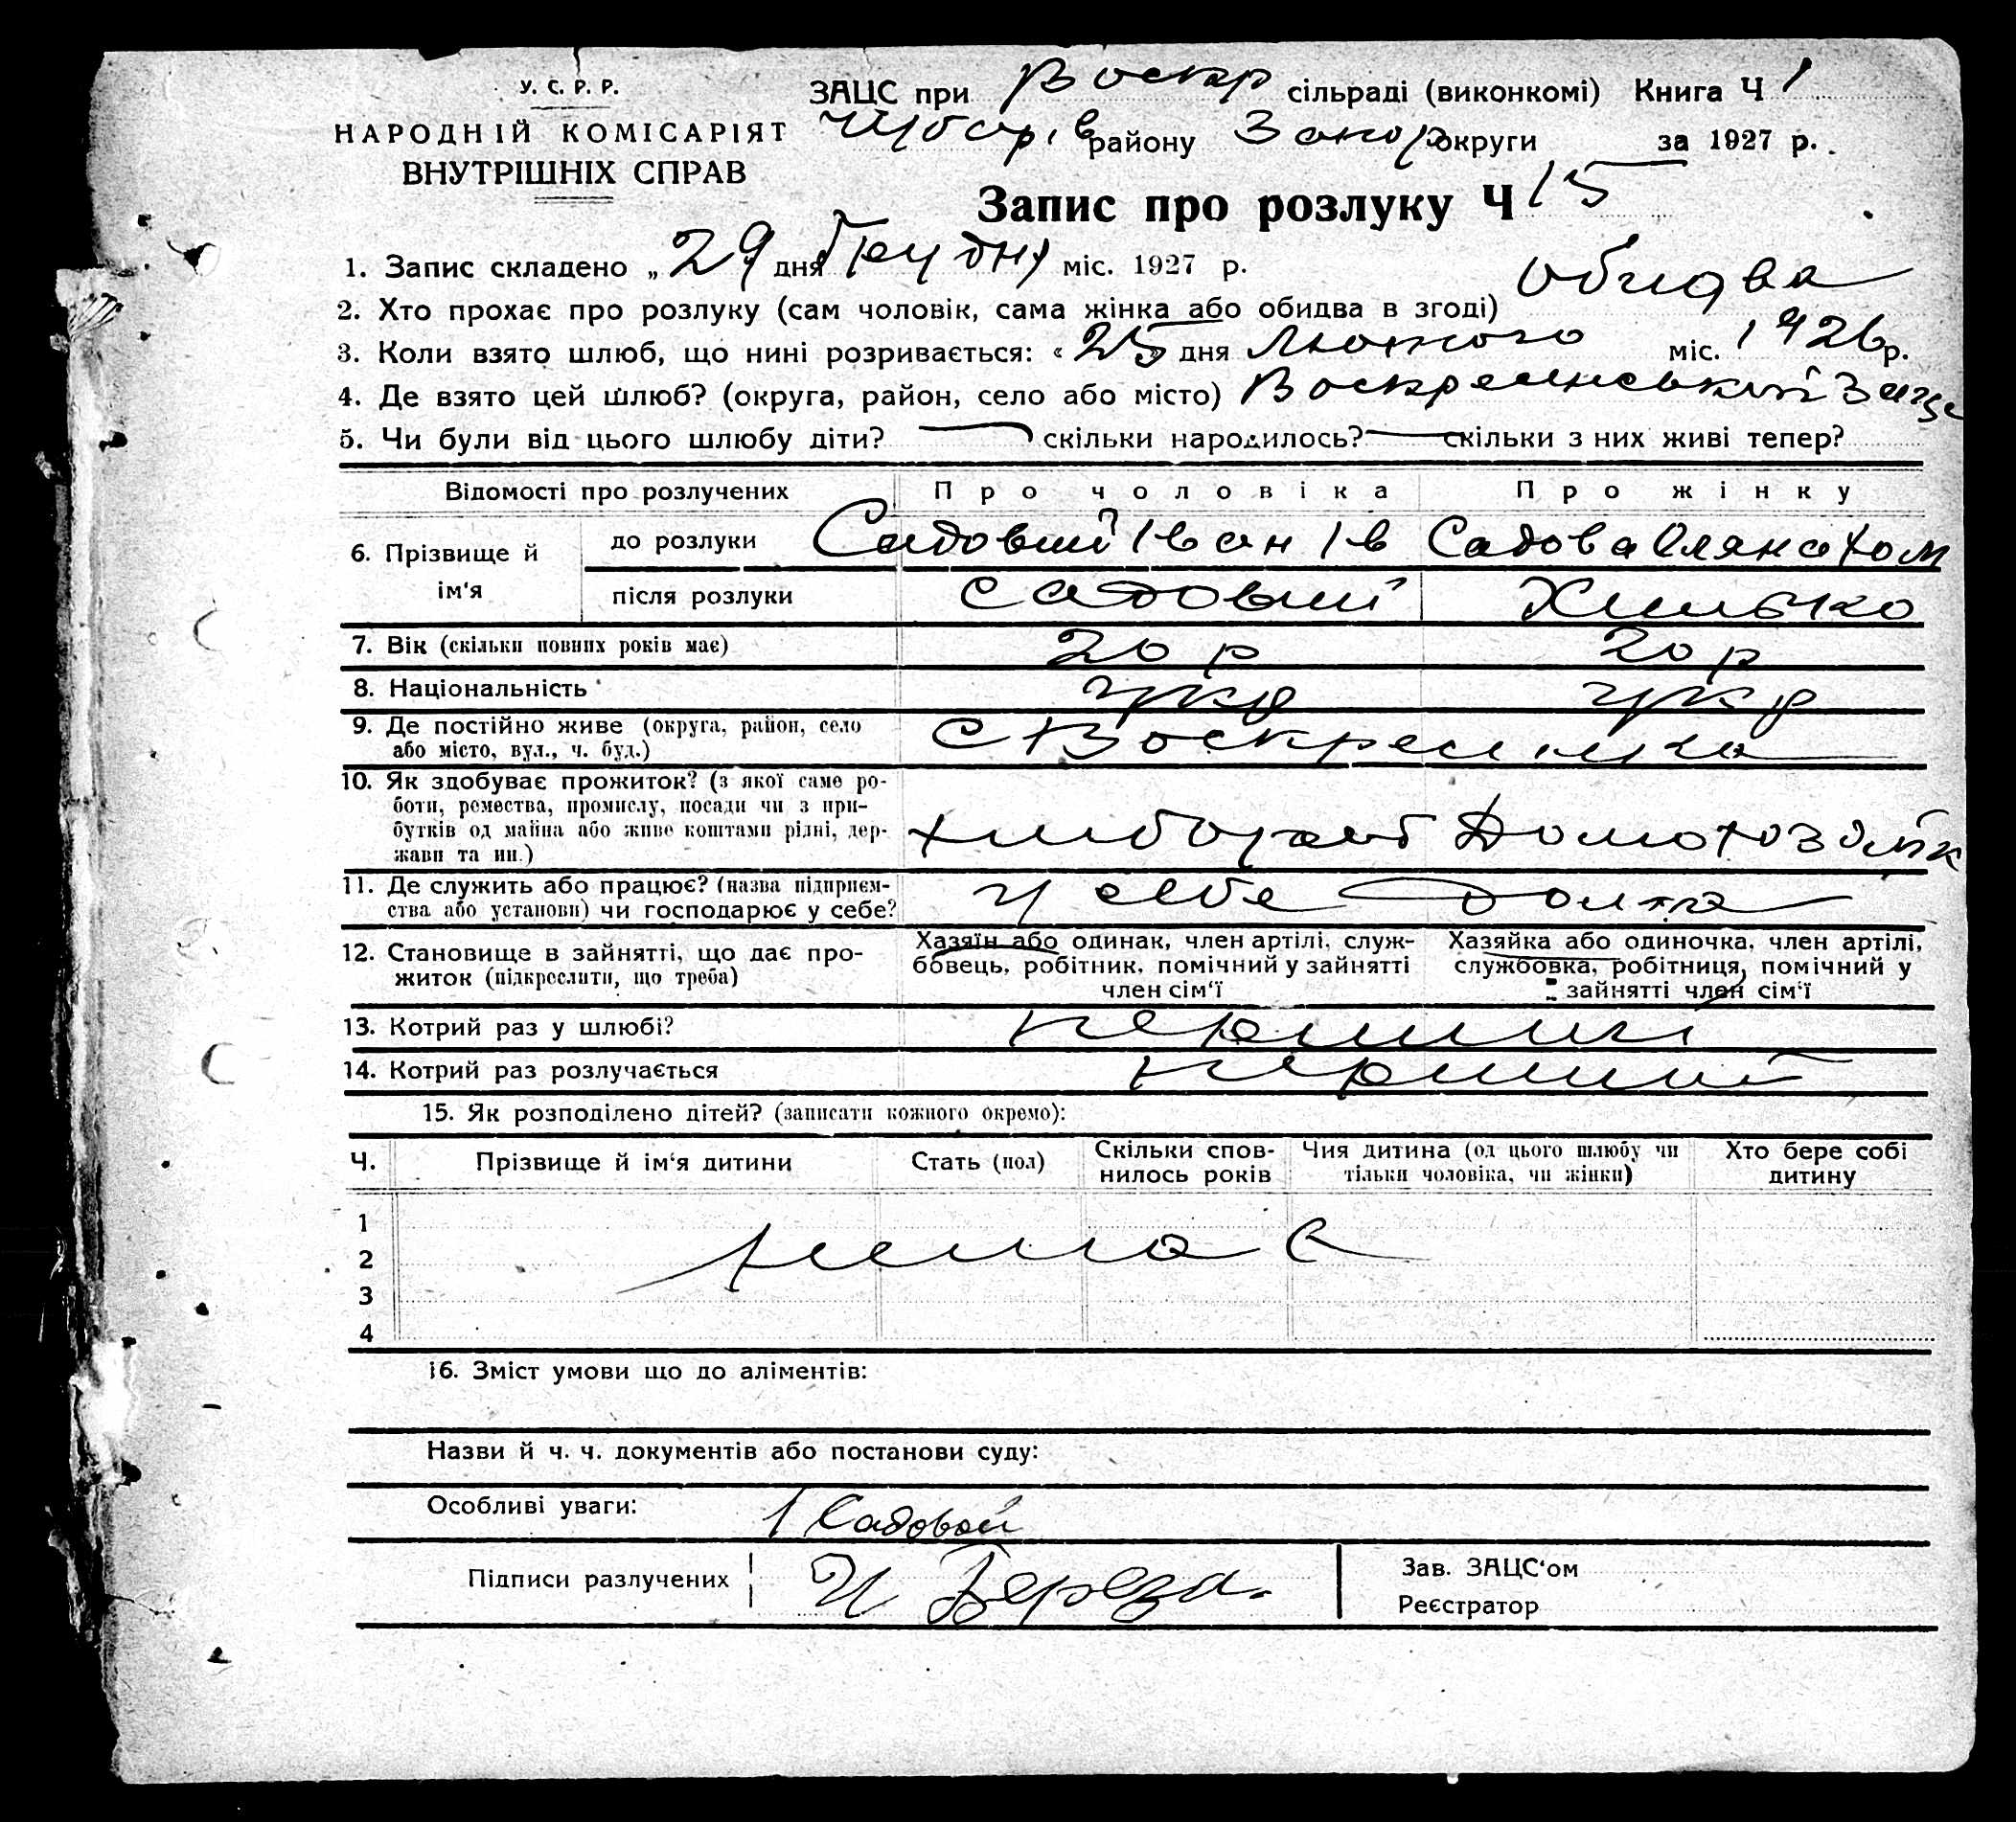 У. С. Р. Р.
НАРОДНІЙ КОМІСАРІЯТ
ВНУТРІШНІХ СПРАВ
ЗАЦС при Воскр сільраді (виконкомі) Книга Ч 1
району Запор округи за 1927 р.
Запис про розлуку Ч 15
1. Запис складено „ 29 дня Грудня міс. 1927 р.
2. Хто прохає про розлуку (сам чоловік, сама жінка або обидва в згоді) обидва
3. Коли взято шлюб, що нині розривається: « 25 дня Лютого міс. 1926 р.
4. Де взято цей шлюб? (округа, район, село або місто) Воскресенський Загс
5. Чи були від цього шлюбу діти? — скільки народилось? — скільки з них живі тепер?
Відомості про розлучених Про чоловіка Про жінку
6. Прізвище й ім'я
до розлуки Садовий Іван Ів Садова Оляна Хом
після розлуки Садовий
7. Вік (скільки повних років має) 20 р 20 р
8. Національність укр укр
9. Де постійно живе (округа, район, село
або місто, вул., ч. буд.) С Воскресенка
10. Як здобуває прожиток? (з якої саме ро-
боти, ремества, промислу, посади чи з при-
бутків од майна або живе коштами рідні, дер-
жави та ин.) хлібороб Домохозяйк
11. Де служить або працює? (назва підприєм-
ства або установи) чи господарює у себе? у себе дома
12. Становище в зайнятті, що дає про-
житок (підкреслити, що треба)
Хазяїн або одинак, член артілі, служ-
бовець, робітник, помічний у зайнятті
член сім'ї
Хазяйка або одиночка, член артілі,
службовка, робітниця, помічний у
зайнятті член сім'ї
13. Котрий раз у шлюбі? перший
14. Котрий раз розлучається перший
15. Як розподілено дітей? (записати кожного окремо):
Ч. Прізвище й ім'я дитини Стать (пол) Скільки спов-
нилось років Чия дитина (од цього шлюбу чи
тільки чоловіка, чи жінки) Хто бере собі
дитину
1
2 немає
3
4
16. Зміст умови що до аліментів:
Назви й ч. ч. документів або постанови суду:
Особливі уваги: І Садовой
Підписи разлучених И Береза
Зав. ЗАЦС'ом
Реєстратор